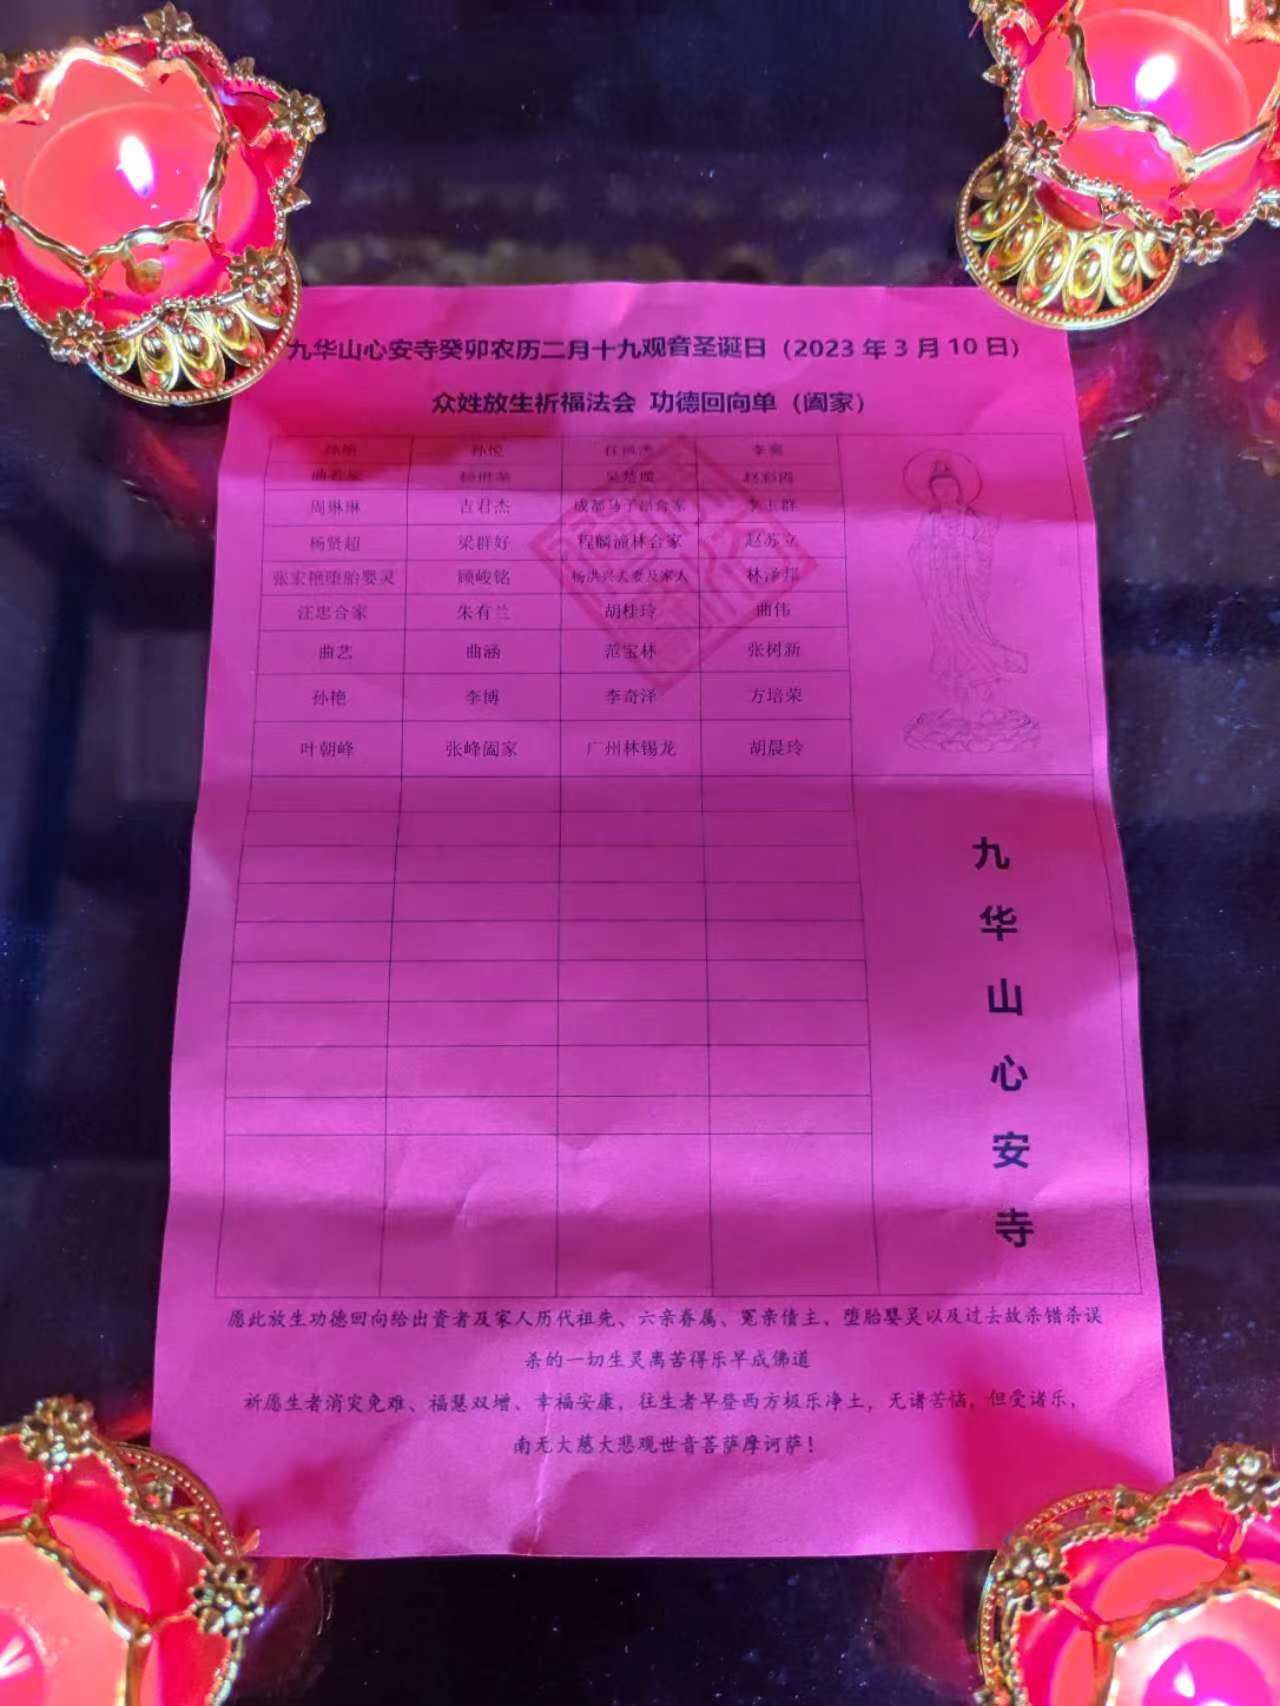 九华山心安寺癸卯农历二月十九观音圣诞日（2023 年 3 月 10 日）
众姓放生祈福法会 功德回向单（阖家）
孙悦 李爽
赵彩霞
周琳琳 吉君杰 李玉群
杨贤超 梁群好 程麟潼林合家 赵苏立
张宏艳堕胎婴灵 顾峻铭 杨洪兴夫妻及家人 林泽邦
汪忠合家 朱有兰 胡桂玲 曲伟
曲艺 曲涵 范宝林 张树新
孙艳 李博 李奇泽 方培荣
叶朝峰 张峰阖家 广州林锡龙 胡晨玲
九
华
山
心
安
寺
愿此放生功德回向给出资者及家人历代祖先、六亲眷属、冤亲债主、堕胎婴灵以及过去故杀错杀误
杀的一切生灵离苦得乐早成佛道
祈愿生者消灾免难、福慧双增、幸福安康，往生者早登西方极乐净土，无诸苦恼，但受诸乐，
南无大慈大悲观世音菩萨摩诃萨！